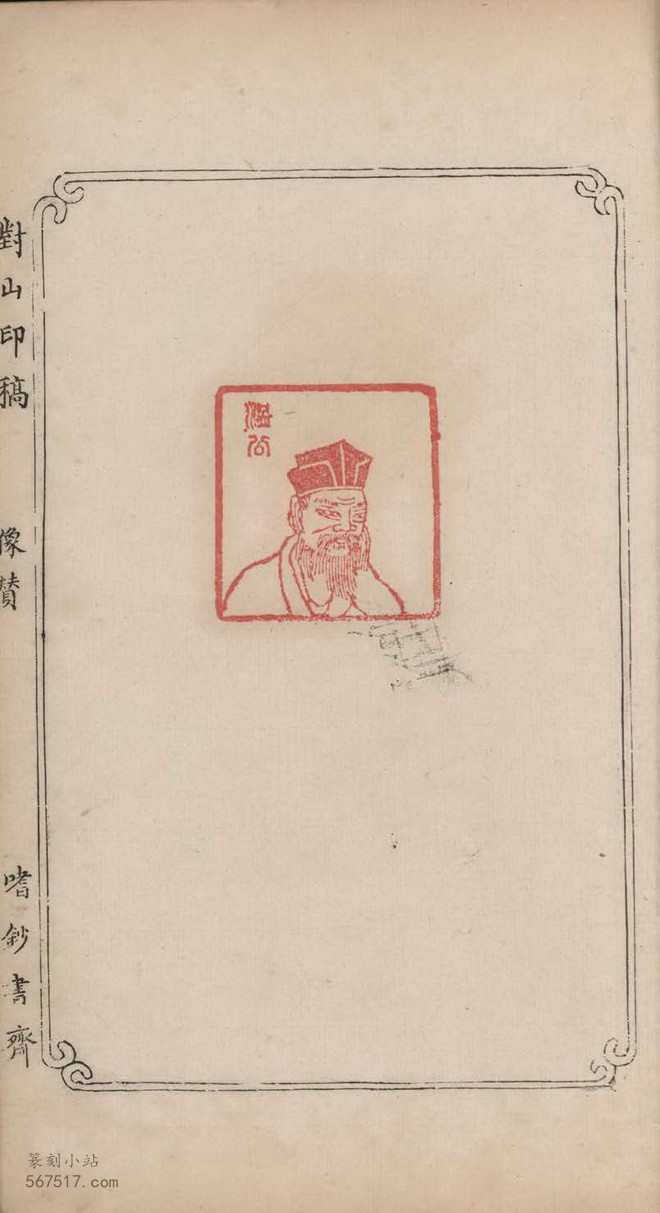 溫公
對山印稿
像賛
嗜鈔書齋
篆刻小站
567517.com